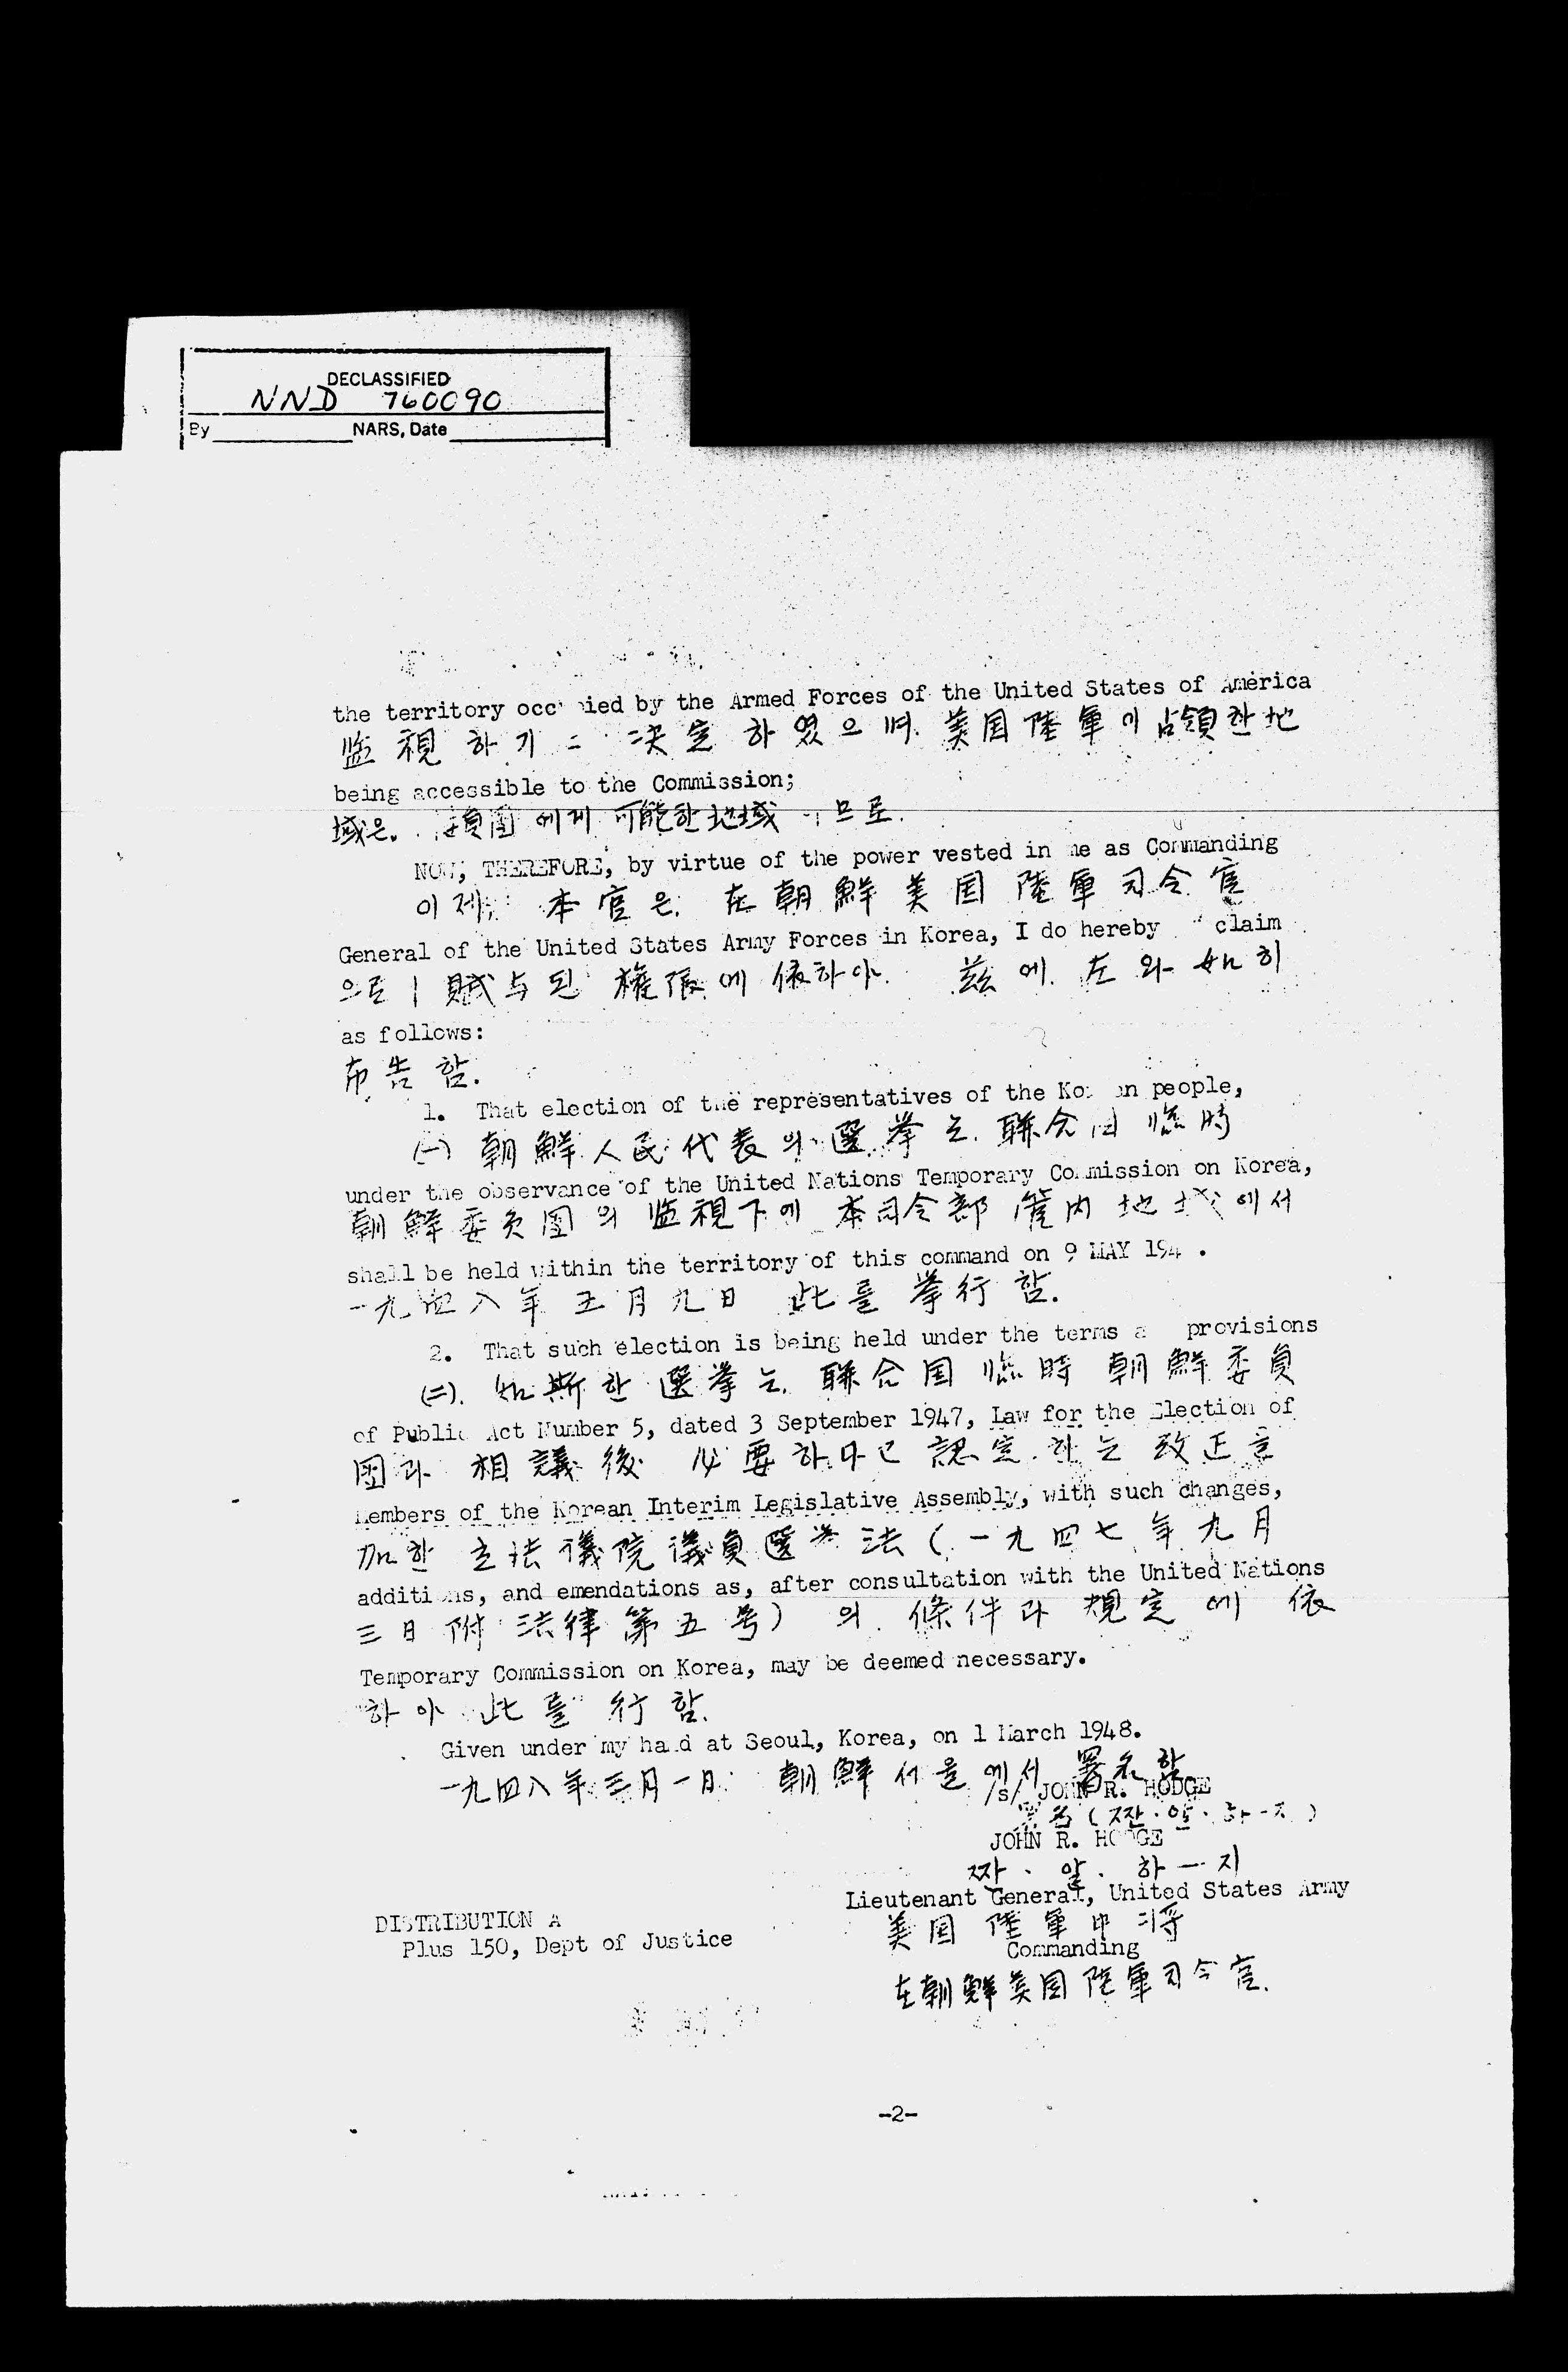 DECLASSIFIED
NND 760090
By NARS, Date
the territory by the Armed Forces of the United States of America
监視하기 决定하였으며. 美国陸軍이 占領한 地
being accessible to the Commission;
域은. 員團에게 可能한 地域 므로.
NOW, THEREFORE, by virtue of the power vested in me as Commanding
이제 本官은. 在朝鮮美国陸軍司令官
General of the United States Army Forces in Korea, I do hereby claim
으로 賦与된 權限에 依하야. 玆에. 左와 如히
as follows:
布告함.
1. That election of the representatives of the people,
(一) 朝鮮人民代表의 選挙는. 聯合国臨時
under the observance of the United Nations Temporary Commission on Korea,
朝鮮委員團의 监視下에 本司令部 管内 地域에서
shall be held within the territory of this command on 9 MAY 194 .
一九四八年五月九日 此를 挙行함.
2. That such election is being held under the terms provisions
(二). 如斯한 選挙는. 聯合国臨時朝鮮委員
of Public Act Number 5, dated 3 September 1947, Law for the Election of
團과 相議後 必要하다고 認定하는 改正을
Members of the Korean Interim Legislative Assembly, with such changes,
加한 立法議院議員選挙法(一九四七年九月
additions, and emendations as, after consultation with the United Nations
三日附 法律第五号)의. 條件과 規定에 依
Temporary Commission on Korea, may be deemed necessary.
하야 此를 行함.
Given under my hand at Seoul, Korea, on 1 March 1948.
一九四八年三月一日 朝鮮 서울에서 署名함.
/s/ JOHN R. HODGE
署名(쨘·알·하-지)
JOHN R. HODGE
쨘·알·하-지
Lieutenant General, United States Army
美国陸軍中將
DISTRIBUTION A
Plus 150, Dept of Justice
Commanding
在朝鮮美国陸軍司令官.
-2-